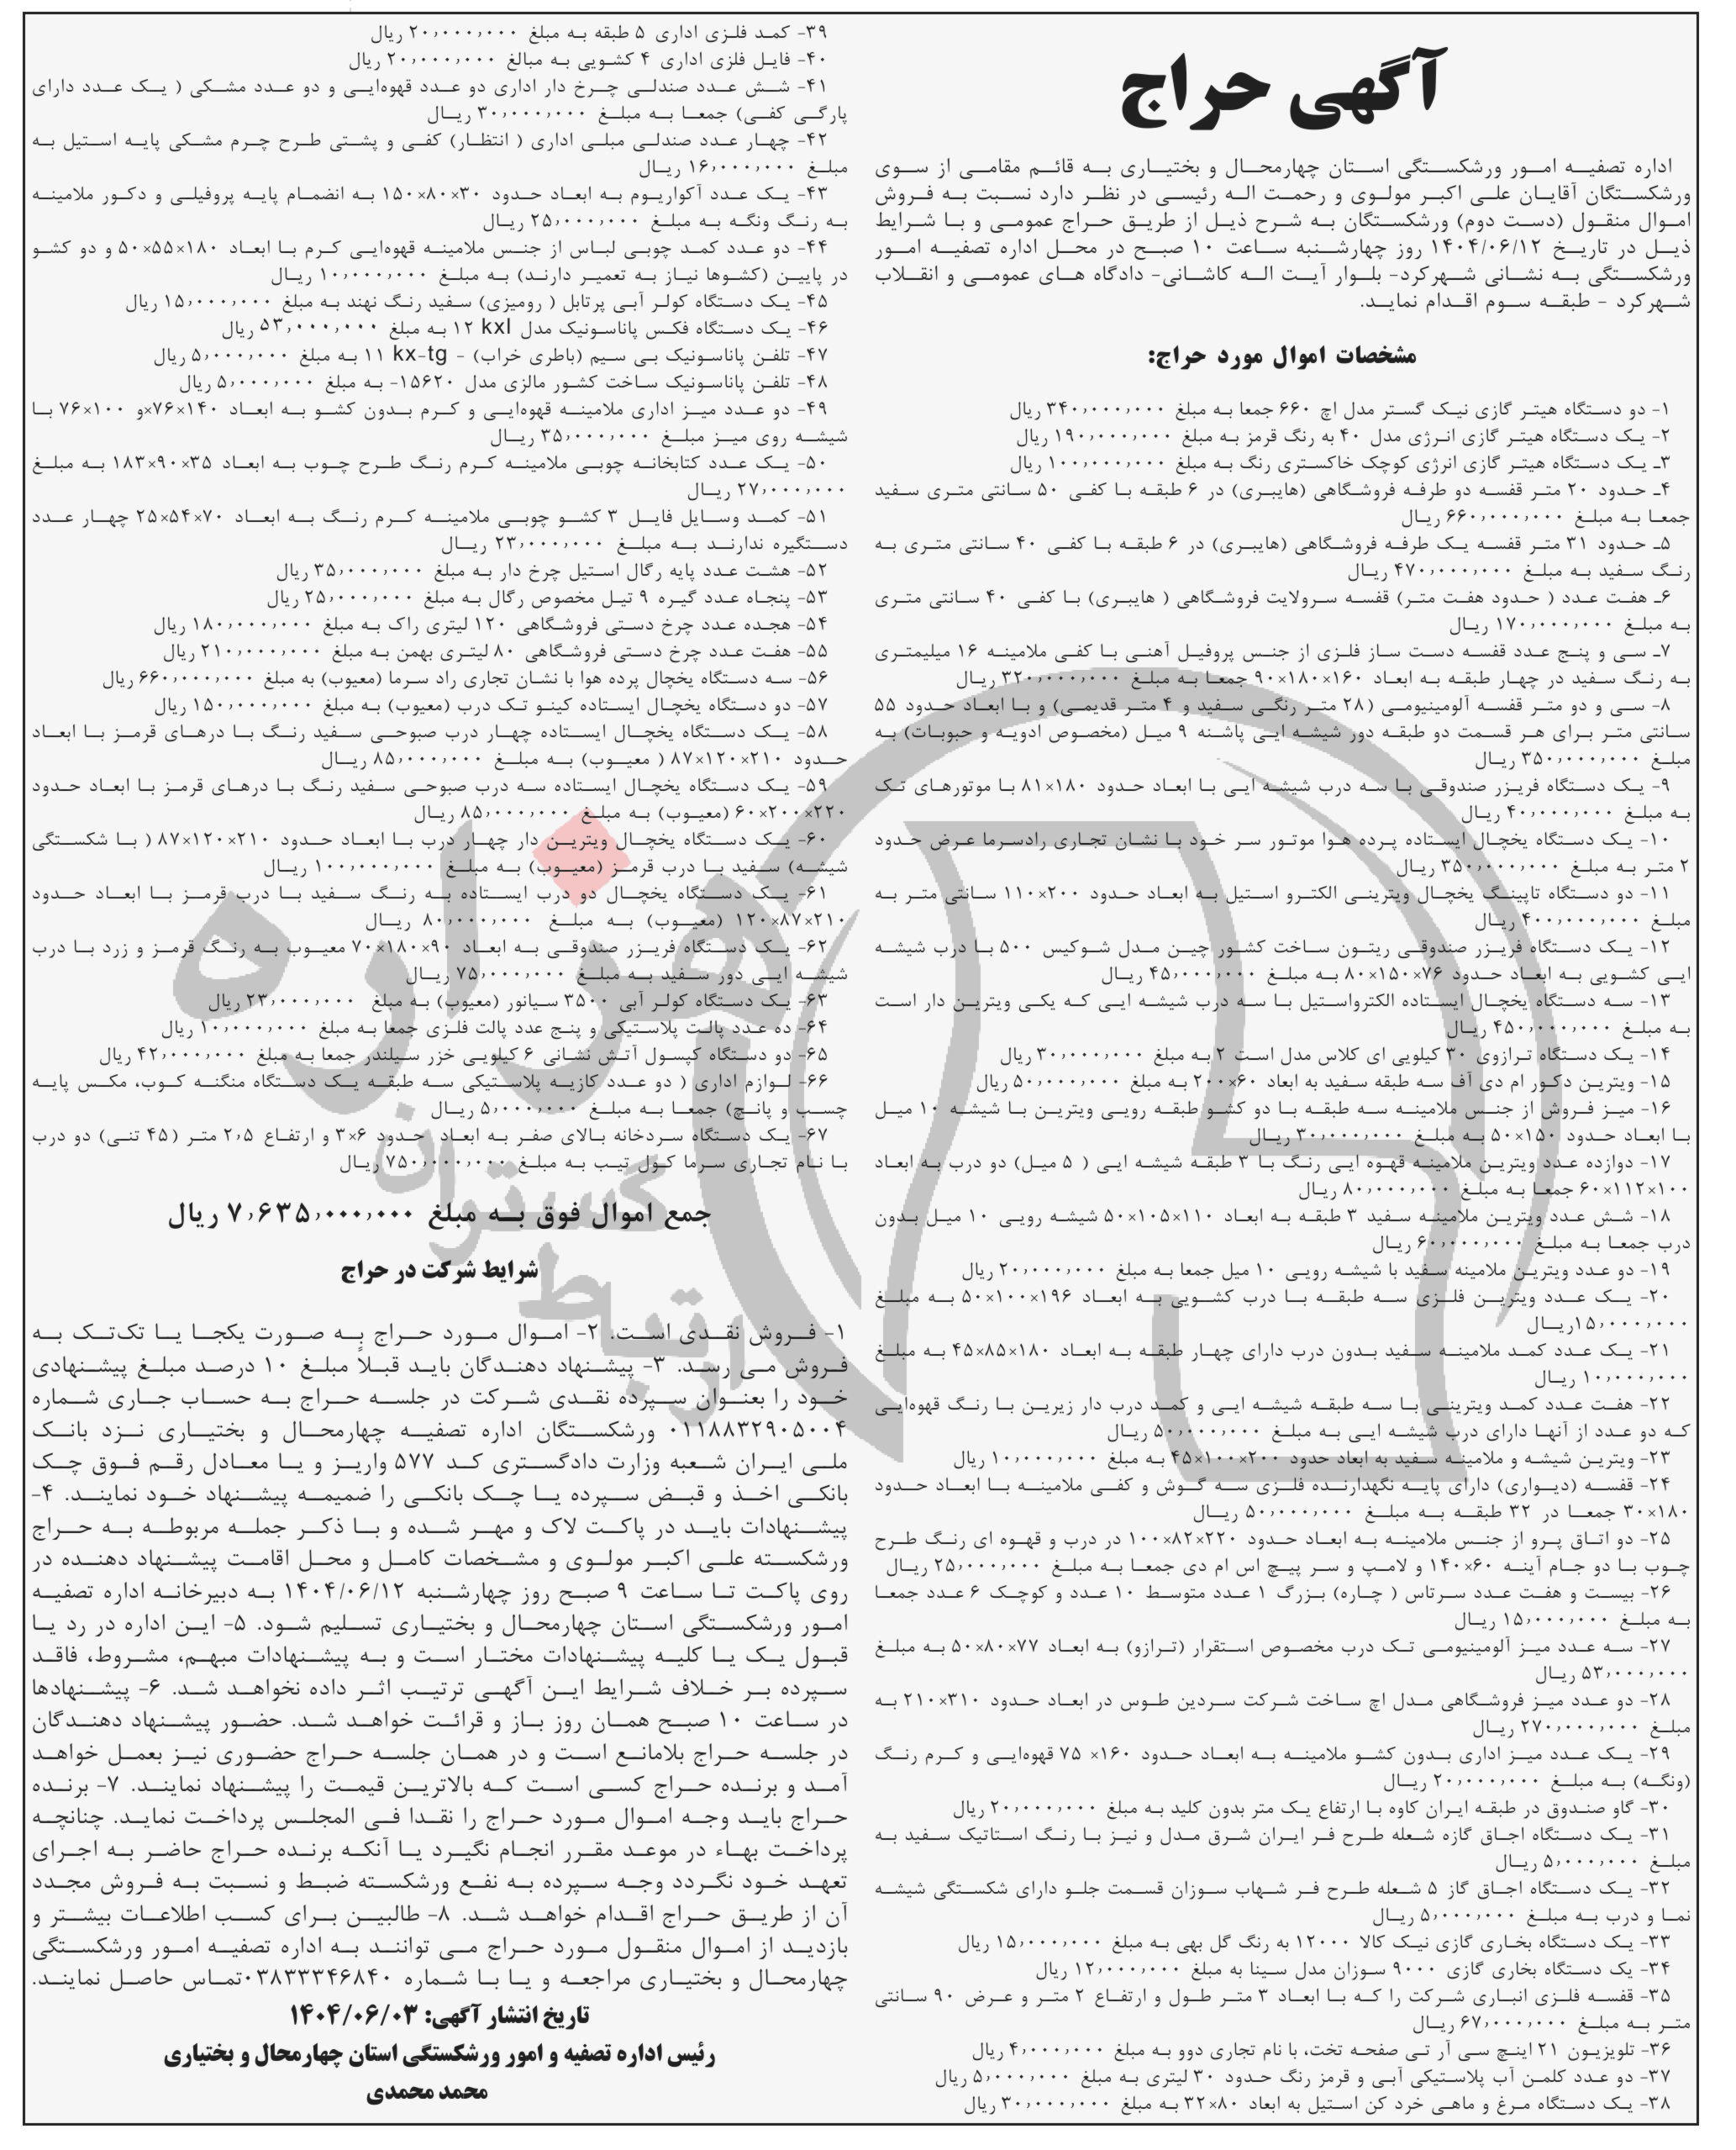 آگهی حراج
اداره تصفیه امور ورشکستگی استان چهارمحال و بختیاری به قائم مقامی از سوی
ورشکستگان آقایان علی اکبر مولوی و رحمت اله رئیسی در نظر دارد نسبت به فروش
اموال منقول (دست دوم) ورشکستگان به شرح ذیل از طریق حراج عمومی و با شرایط
ذیل در تاریخ ۱۴۰۴/۰۶/۱۲ روز چهارشنبه ساعت ۱۰ صبح در محل اداره تصفیه امور
ورشکستگی به نشانی شهرکرد- بلوار آیت اله کاشانی- دادگاه های عمومی و انقلاب
شهرکرد - طبقه سوم اقدام نماید.
مشخصات اموال مورد حراج:
۱- دو دستگاه هیتر گازی نیک گستر مدل اچ ۶۶۰ جمعا به مبلغ ۳۴۰,۰۰۰,۰۰۰ ریال
۲- یک دستگاه هیتر گازی انرژی مدل ۴۰ به رنگ قرمز به مبلغ ۱۹۰,۰۰۰,۰۰۰ ریال
۳ـ یک دستگاه هیتر گازی انرژی کوچک خاکستری رنگ به مبلغ ۱۰۰,۰۰۰,۰۰۰ ریال
۴ـ حدود ۲۰ متر قفسه دو طرفه فروشگاهی (هایبری) در ۶ طبقه با کفی ۵۰ سانتی متری سفید
جمعا به مبلغ ۶۶۰,۰۰۰,۰۰۰ ریال
۵ـ حدود ۳۱ متر قفسه یک طرفه فروشگاهی (هایبری) در ۶ طبقه با کفی ۴۰ سانتی متری به
رنگ سفید به مبلغ ۴۷۰,۰۰۰,۰۰۰ ریال
۶ـ هفت عدد ( حدود هفت متر) قفسه سرولایت فروشگاهی ( هایبری) با کفی ۴۰ سانتی متری
به مبلغ ۱۷۰,۰۰۰,۰۰۰ ریال
۷ـ سی و پنج عدد قفسه دست ساز فلزی از جنس پروفیل آهنی با کفی ملامینه ۱۶ میلیمتری
به رنگ سفید در چهار طبقه به ابعاد ۱۶۰×۱۸۰×۹۰ جمعا به مبلغ ۳۲۰,۰۰۰,۰۰۰ ریال
۸- سی و دو متر قفسه آلومینیومی (۲۸ متر رنگی سفید و ۴ متر قدیمی) و با ابعاد حدود ۵۵
سانتی متر برای هر قسمت دو طبقه دور شیشه ایی پاشنه ۹ میل (مخصوص ادویه و حبوبات) به
مبلغ ۳۵۰,۰۰۰,۰۰۰ ریال
۹- یک دستگاه فریزر صندوقی با سه درب شیشه ایی با ابعاد حدود ۱۸۰×۸۱ با موتورهای تک
به مبلغ ۴۰,۰۰۰,۰۰۰ ریال
۱۰- یک دستگاه یخچال ایستاده پرده هوا موتور سر خود با نشان تجاری رادسرما عرض حدود
۲ متر به مبلغ ۳۵۰,۰۰۰,۰۰۰ ریال
۱۱- دو دستگاه تاپینگ یخچال ویترینی الکترو استیل به ابعاد حدود ۲۰۰×۱۱۰ سانتی متر به
مبلغ ۴۰۰,۰۰۰,۰۰۰ ریال
۱۲- یک دستگاه فریزر صندوقی ریتون ساخت کشور چین مدل شوکیس ۵۰۰ با درب شیشه
ایی کشویی به ابعاد حدود ۷۶×۱۵۰×۸۰ به مبلغ ۴۵,۰۰۰,۰۰۰ ریال
۱۳- سه دستگاه یخچال ایستاده الکترواستیل با سه درب شیشه ایی که یکی ویترین دار است
به مبلغ ۴۵۰,۰۰۰,۰۰۰ ریال
۱۴- یک دستگاه ترازوی ۳۰ کیلویی ای کلاس مدل است ۲ به مبلغ ۳۰,۰۰۰,۰۰۰ ریال
۱۵- ویترین دکور ام دی آف سه طبقه سفید به ابعاد ۶۰×۲۰۰ به مبلغ ۵۰,۰۰۰,۰۰۰ ریال
۱۶- میز فروش از جنس ملامینه سه طبقه با دو کشو طبقه رویی ویترین با شیشه ۱۰ میل
با ابعاد حدود ۱۵۰×۵۰ به مبلغ ۳۰,۰۰۰,۰۰۰ ریال
۱۷- دوازده عدد ویترین ملامینه قهوه ایی رنگ با ۳ طبقه شیشه ایی ( ۵ میل) دو درب به ابعاد
۱۰۰×۱۱۲×۶۰ جمعا به مبلغ ۸۰,۰۰۰,۰۰۰ ریال
۱۸- شش عدد ویترین ملامینه سفید ۳ طبقه به ابعاد ۱۱۰×۱۰۵×۵۰ شیشه رویی ۱۰ میل بدون
درب جمعا به مبلغ ۶۰,۰۰۰,۰۰۰ ریال
۱۹- دو عدد ویترین ملامینه سفید با شیشه رویی ۱۰ میل جمعا به مبلغ ۲۰,۰۰۰,۰۰۰ ریال
۲۰- یک عدد ویترین فلزی سه طبقه با درب کشویی به ابعاد ۱۹۶×۱۰۰×۵۰ به مبلغ
۱۵,۰۰۰,۰۰۰ریال
۲۱- یک عدد کمد ملامینه سفید بدون درب دارای چهار طبقه به ابعاد ۱۸۰×۸۵×۴۵ به مبلغ
۱۰,۰۰۰,۰۰۰ ریال
۲۲- هفت عدد کمد ویترینی با سه طبقه شیشه ایی و کمد درب دار زیرین با رنگ قهوه‌ایی
که دو عدد از آنها دارای درب شیشه ایی به مبلغ ۵۰,۰۰۰,۰۰۰ ریال
۲۳- ویترین شیشه و ملامینه سفید به ابعاد حدود ۲۰۰×۱۰۰×۴۵ به مبلغ ۱۰,۰۰۰,۰۰۰ ریال
۲۴- قفسه (دیواری) دارای پایه نگهدارنده فلزی سه گوش و کفی ملامینه با ابعاد حدود
۱۸۰×۳۰ جمعا در ۳۲ طبقه به مبلغ ۵۰,۰۰۰,۰۰۰ ریال
۲۵- دو اتاق پرو از جنس ملامینه به ابعاد حدود ۲۲۰×۸۲×۱۰۰ در درب و قهوه ای رنگ طرح
چوب با دو جام آینه ۶۰×۱۴۰ و لامپ و سر پیچ اس ام دی جمعا به مبلغ ۲۵,۰۰۰,۰۰۰ ریال
۲۶- بیست و هفت عدد سرتاس ( چاره) بزرگ ۱ عدد متوسط ۱۰ عدد و کوچک ۶ عدد جمعا
به مبلغ ۱۵,۰۰۰,۰۰۰ ریال
۲۷- سه عدد میز آلومینیومی تک درب مخصوص استقرار (ترازو) به ابعاد ۷۷×۸۰×۵۰ به مبلغ
۵۳,۰۰۰,۰۰۰ ریال
۲۸- دو عدد میز فروشگاهی مدل اچ ساخت شرکت سردین طوس در ابعاد حدود ۳۱۰×۲۱۰ به
مبلغ ۲۷۰,۰۰۰,۰۰۰ ریال
۲۹- یک عدد میز اداری بدون کشو ملامینه به ابعاد حدود ۱۶۰× ۷۵ قهوه‌ایی و کرم رنگ
(ونگه) به مبلغ ۲۰,۰۰۰,۰۰۰ ریال
۳۰- گاو صندوق در طبقه ایران کاوه با ارتفاع یک متر بدون کلید به مبلغ ۲۰,۰۰۰,۰۰۰ ریال
۳۱- یک دستگاه اجاق گازه شعله طرح فر ایران شرق مدل و نیز با رنگ استاتیک سفید به
مبلغ ۵,۰۰۰,۰۰۰ ریال
۳۲- یک دستگاه اجاق گاز ۵ شعله طرح فر شهاب سوزان قسمت جلو دارای شکستگی شیشه
نما و درب به مبلغ ۵,۰۰۰,۰۰۰ ریال
۳۳- یک دستگاه بخاری گازی نیک کالا ۱۲۰۰۰ به رنگ گل بهی به مبلغ ۱۵,۰۰۰,۰۰۰ ریال
۳۴- یک دستگاه بخاری گازی ۹۰۰۰ سوزان مدل سینا به مبلغ ۱۲,۰۰۰,۰۰۰ ریال
۳۵- قفسه فلزی انباری شرکت را که با ابعاد ۳ متر طول و ارتفاع ۲ متر و عرض ۹۰ سانتی
متر به مبلغ ۶۷,۰۰۰,۰۰۰ ریال
۳۶- تلویزیون ۲۱ اینچ سی آر تی صفحه تخت، با نام تجاری دوو به مبلغ ۴,۰۰۰,۰۰۰ ریال
۳۷- دو عدد کلمن آب پلاستیکی آبی و قرمز رنگ حدود ۳۰ لیتری به مبلغ ۵,۰۰۰,۰۰۰ ریال
۳۸- یک دستگاه مرغ و ماهی خرد کن استیل به ابعاد ۸۰×۳۲ به مبلغ ۳۰,۰۰۰,۰۰۰ ریال
۳۹- کمد فلزی اداری ۵ طبقه به مبلغ ۲۰,۰۰۰,۰۰۰ ریال
۴۰- فایل فلزی اداری ۴ کشویی به مبالغ ۲۰,۰۰۰,۰۰۰ ریال
۴۱- شش عدد صندلی چرخ دار اداری دو عدد قهوه‌ایی و دو عدد مشکی ( یک عدد دارای
پارگی کفی) جمعا به مبلغ ۳۰,۰۰۰,۰۰۰ ریال
۴۲- چهار عدد صندلی مبلی اداری ( انتظار) کفی و پشتی طرح چرم مشکی پایه استیل به
مبلغ ۱۶,۰۰۰,۰۰۰ ریال
۴۳- یک عدد آکواریوم به ابعاد حدود ۳۰×۸۰×۱۵۰ به انضمام پایه پروفیلی و دکور ملامینه
به رنگ ونگه به مبلغ ۲۵,۰۰۰,۰۰۰ ریال
۴۴- دو عدد کمد چوبی لباس از جنس ملامینه قهوه‌ایی کرم با ابعاد ۱۸۰×۵۵×۵۰ و دو کشو
در پایین (کشوها نیاز به تعمیر دارند) به مبلغ ۱۰,۰۰۰,۰۰۰ ریال
۴۵- یک دستگاه کولر آبی پرتابل ( رومیزی) سفید رنگ نهند به مبلغ ۱۵,۰۰۰,۰۰۰ ریال
۴۶- یک دستگاه فکس پاناسونیک مدل kxl ۱۲ به مبلغ ۵۳,۰۰۰,۰۰۰ ریال
۴۷- تلفن پاناسونیک بی سیم (باطری خراب) - kx-tg ۱۱ به مبلغ ۵,۰۰۰,۰۰۰ ریال
۴۸- تلفن پاناسونیک ساخت کشور مالزی مدل ۱۵۶۲۰- به مبلغ ۵,۰۰۰,۰۰۰ ریال
۴۹- دو عدد میز اداری ملامینه قهوه‌ایی و کرم بدون کشو به ابعاد ۱۴۰×۷۶×و ۱۰۰×۷۶ با
شیشه روی میز مبلغ ۳۵,۰۰۰,۰۰۰ ریال
۵۰- یک عدد کتابخانه چوبی ملامینه کرم رنگ طرح چوب به ابعاد ۳۵×۹۰×۱۸۳ به مبلغ
۲۷,۰۰۰,۰۰۰ ریال
۵۱- کمد وسایل فایل ۳ کشو چوبی ملامینه کرم رنگ به ابعاد ۷۰×۵۴×۲۵ چهار عدد
دستگیره ندارند به مبلغ ۲۳,۰۰۰,۰۰۰ ریال
۵۲- هشت عدد پایه رگال استیل چرخ دار به مبلغ ۳۵,۰۰۰,۰۰۰ ریال
۵۳- پنجاه عدد گیره ۹ تیل مخصوص رگال به مبلغ ۲۵,۰۰۰,۰۰۰ ریال
۵۴- هجده عدد چرخ دستی فروشگاهی ۱۲۰ لیتری راک به مبلغ ۱۸۰,۰۰۰,۰۰۰ ریال
۵۵- هفت عدد چرخ دستی فروشگاهی ۸۰ لیتری بهمن به مبلغ ۲۱۰,۰۰۰,۰۰۰ ریال
۵۶- سه دستگاه یخچال پرده هوا با نشان تجاری راد سرما (معیوب) به مبلغ ۶۶۰,۰۰۰,۰۰۰ ریال
۵۷- دو دستگاه یخچال ایستاده کینو تک درب (معیوب) به مبلغ ۱۵۰,۰۰۰,۰۰۰ ریال
۵۸- یک دستگاه یخچال ایستاده چهار درب صبوحی سفید رنگ با درهای قرمز با ابعاد
حدود ۲۱۰×۱۲۰×۸۷ ( معیوب) به مبلغ ۸۵,۰۰۰,۰۰۰ ریال
۵۹- یک دستگاه یخچال ایستاده سه درب صبوحی سفید رنگ با درهای قرمز با ابعاد حدود
۲۲۰×۲۰۰×۶۰ (معیوب) به مبلغ ۸۵,۰۰۰,۰۰۰ ریال
۶۰- یک دستگاه یخچال ویترین دار چهار درب با ابعاد حدود ۲۱۰×۱۲۰×۸۷ ( با شکستگی
شیشه) سفید با درب قرمز (معیوب) به مبلغ ۱۰۰,۰۰۰,۰۰۰ ریال
۶۱- یک دستگاه یخچال دو درب ایستاده به رنگ سفید با درب قرمز با ابعاد حدود
۲۱۰×۸۷×۱۲۰ (معیوب) به مبلغ ۸۰,۰۰۰,۰۰۰ ریال
۶۲- یک دستگاه فریزر صندوقی به ابعاد ۹۰×۱۸۰×۷۰ معیوب به رنگ قرمز و زرد با درب
شیشه ایی دور سفید به مبلغ ۷۵,۰۰۰,۰۰۰ ریال
۶۳- یک دستگاه کولر آبی ۳۵۰۰ سیانور (معیوب) به مبلغ ۲۳,۰۰۰,۰۰۰ ریال
۶۴- ده عدد پالت پلاستیکی و پنج عدد پالت فلزی جمعا به مبلغ ۱۰,۰۰۰,۰۰۰ ریال
۶۵- دو دستگاه کپسول آتش نشانی ۶ کیلویی خزر سیلندر جمعا به مبلغ ۴۲,۰۰۰,۰۰۰ ریال
۶۶- لوازم اداری ( دو عدد کازیه پلاستیکی سه طبقه یک دستگاه منگنه کوب، مکس پایه
چسب و پانچ) جمعا به مبلغ ۵,۰۰۰,۰۰۰ ریال
۶۷- یک دستگاه سردخانه بالای صفر به ابعاد حدود ۶×۳ و ارتفاع ۲٫۵ متر (۴۵ تنی) دو درب
با نام تجاری سرما کول تیب به مبلغ ۷۵۰,۰۰۰,۰۰۰ ریال
جمع اموال فوق به مبلغ ۷,۶۳۵,۰۰۰,۰۰۰ ریال
شرایط شرکت در حراج
۱- فروش نقدی است. ۲- اموال مورد حراج به صورت یکجا یا تک‌تک به
فروش می رسد. ۳- پیشنهاد دهندگان باید قبلاً مبلغ ۱۰ درصد مبلغ پیشنهادی
خود را بعنوان سپرده نقدی شرکت در جلسه حراج به حساب جاری شماره
۰۱۱۸۸۳۲۹۰۵۰۰۴ ورشکستگان اداره تصفیه چهارمحال و بختیاری نزد بانک
ملی ایران شعبه وزارت دادگستری کد ۵۷۷ واریز و یا معادل رقم فوق چک
بانکی اخذ و قبض سپرده یا چک بانکی را ضمیمه پیشنهاد خود نمایند. ۴-
پیشنهادات باید در پاکت لاک و مهر شده و با ذکر جمله مربوطه به حراج
ورشکسته علی اکبر مولوی و مشخصات کامل و محل اقامت پیشنهاد دهنده در
روی پاکت تا ساعت ۹ صبح روز چهارشنبه ۱۴۰۴/۰۶/۱۲ به دبیرخانه اداره تصفیه
امور ورشکستگی استان چهارمحال و بختیاری تسلیم شود. ۵- این اداره در رد یا
قبول یک یا کلیه پیشنهادات مختار است و به پیشنهادات مبهم، مشروط، فاقد
سپرده بر خلاف شرایط این آگهی ترتیب اثر داده نخواهد شد. ۶- پیشنهادها
در ساعت ۱۰ صبح همان روز باز و قرائت خواهد شد. حضور پیشنهاد دهندگان
در جلسه حراج بلامانع است و در همان جلسه حراج حضوری نیز بعمل خواهد
آمد و برنده حراج کسی است که بالاترین قیمت را پیشنهاد نمایند. ۷- برنده
حراج باید وجه اموال مورد حراج را نقدا فی المجلس پرداخت نماید. چنانچه
پرداخت بهاء در موعد مقرر انجام نگیرد یا آنکه برنده حراج حاضر به اجرای
تعهد خود نگردد وجه سپرده به نفع ورشکسته ضبط و نسبت به فروش مجدد
آن از طریق حراج اقدام خواهد شد. ۸- طالبین برای کسب اطلاعات بیشتر و
بازدید از اموال منقول مورد حراج می توانند به اداره تصفیه امور ورشکستگی
چهارمحال و بختیاری مراجعه و یا با شماره ۰۳۸۳۳۳۴۶۸۴۰تماس حاصل نمایند.
تاریخ انتشار آگهی: ۱۴۰۴/۰۶/۰۳
رئیس اداره تصفیه و امور ورشکستگی استان چهارمحال و بختیاری
محمد محمدی
هزاره
گستران
ارتباط